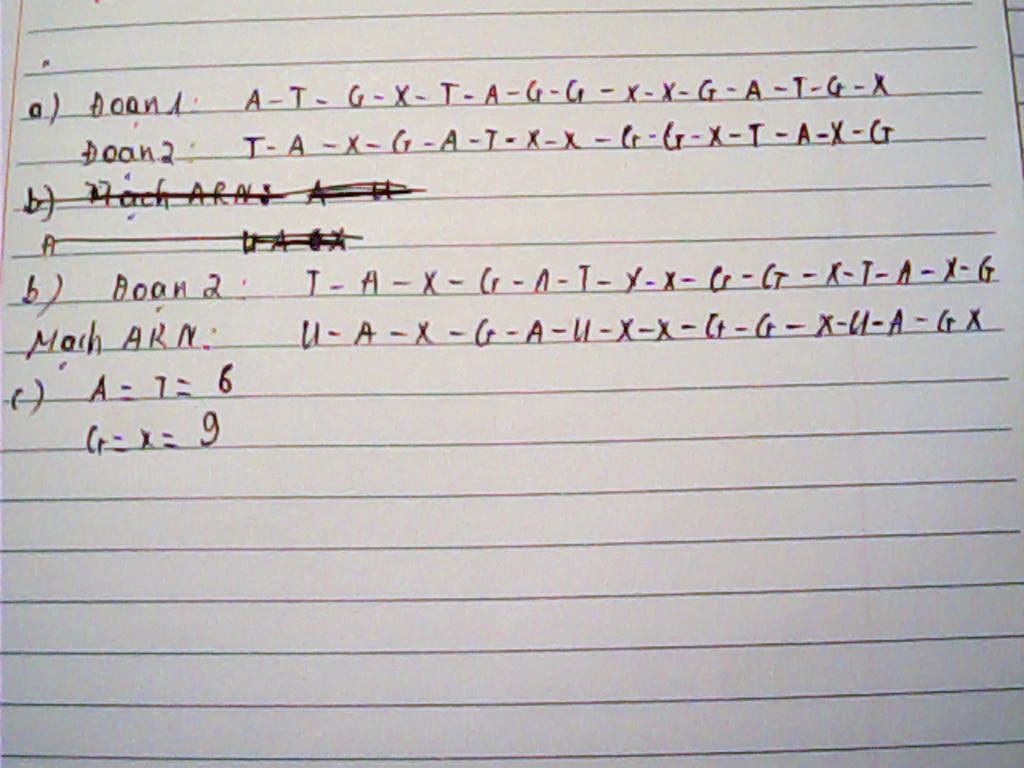 a) Đoạn 1: A-T-G-X-T-A-G-G-X-X-G-A-T-G-X
Đoạn 2: T-A-X-G-A-T-X-X-G-G-X-T-A-X-G
b) Mạch ARN: A U
A U A G X
b) Đoạn 2: T-A-X-G-A-T-X-X-G-G-X-T-A-X-G
Mạch ARN: U-A-X-G-A-U-X-X-G-G-X-U-A-G X
c) A = T = 6
G = X = 9